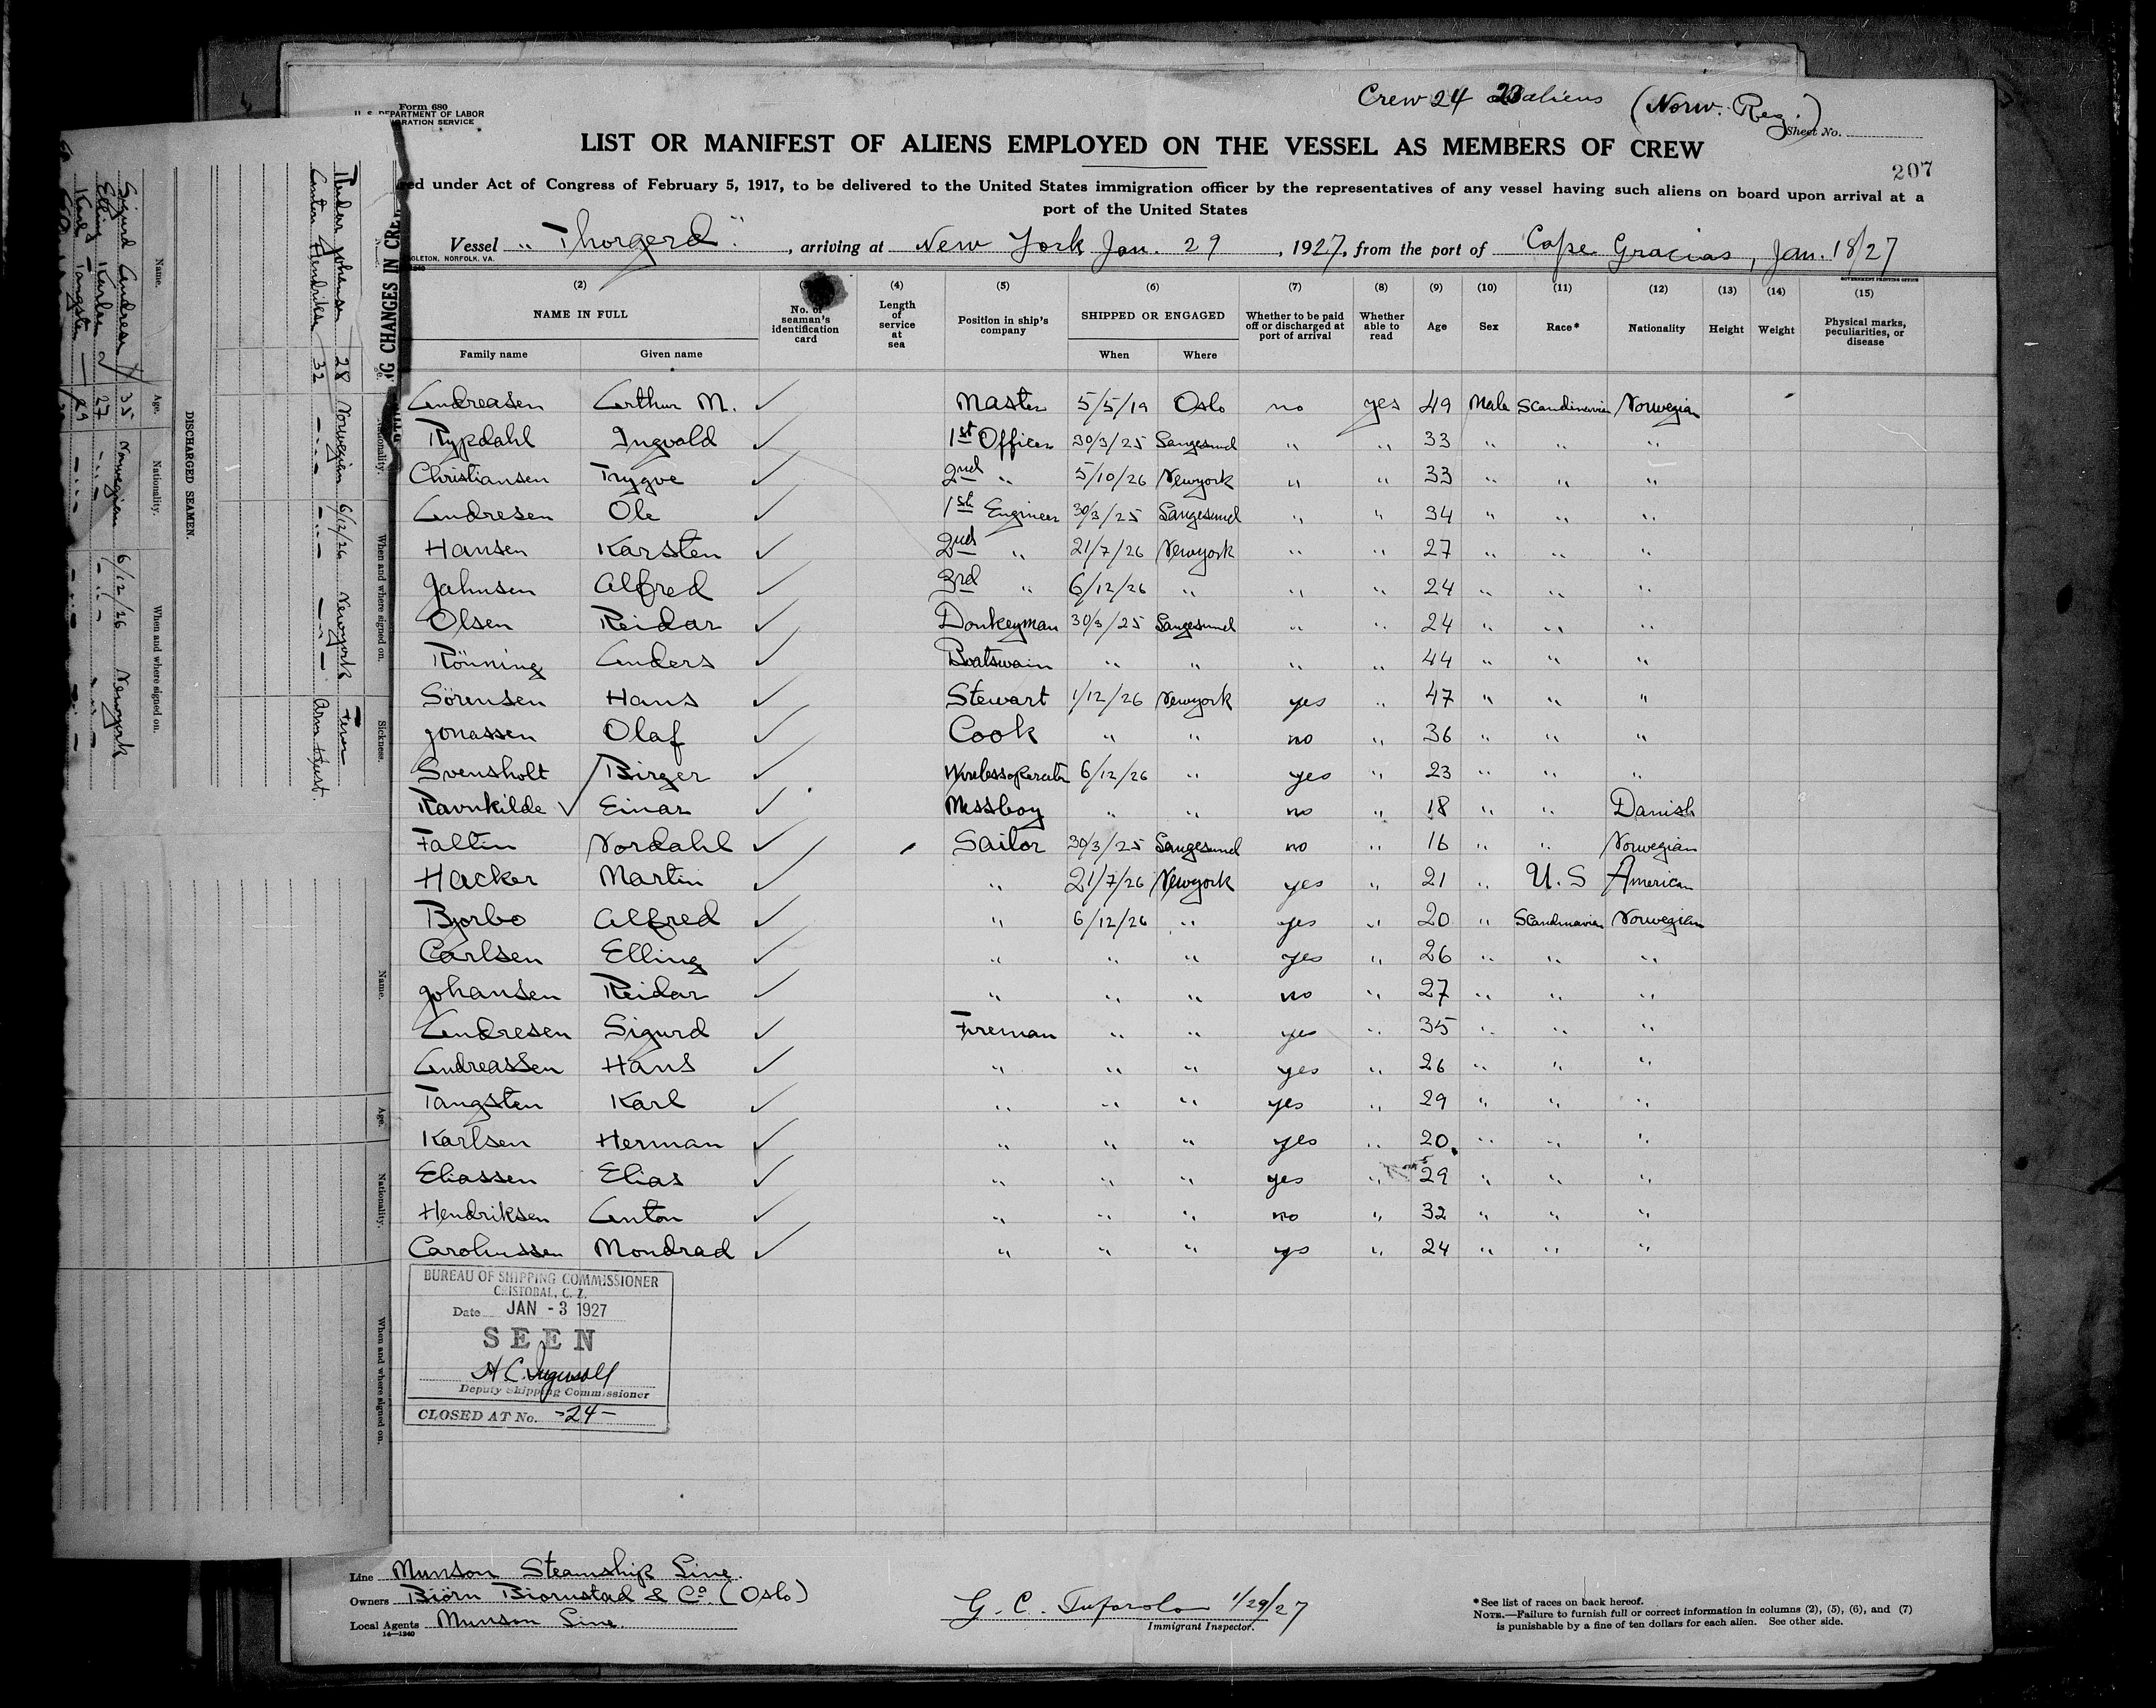 Form 680
U. S. DEPARTMENT OF LABOR
IGRATION SERVICE
Crew 24 23 aliens (Norw. Reg.)
Sheet No.
LIST OR MANIFEST OF ALIENS EMPLOYED ON THE VESSEL AS MEMBERS OF CREW
207
red under Act of Congress of February 5, 1917, to be delivered to the United States immigration officer by the representatives of any vessel having such aliens on board upon arrival at a
port of the United States
Vessel "Thorgerd", arriving at New York Jan. 29, 1927, from the port of Cape Gracias, Jan. 18/27
GLETON, NORFOLK, VA.
GOVERNMENT PRINTING OFFICE
(2) (4) (5) (6) (7) (8) (9) (10) (11) (12) (13) (14) (15)
NAME IN FULL No. of seaman's identification card Length of service at sea Position in ship's company SHIPPED OR ENGAGED Whether to be paid off or discharged at port of arrival Whether able to read Age Sex Race* Nationality Height Weight Physical marks, peculiarities, or disease
Family name Given name When Where
Andreasen Arthur M. ✓ Master 5/5/19 Oslo no yes 49 Male Scandinavian Norwegian
Rypdahl Ingvold ✓ 1st Officer 30/3/25 Langesund " " 33 " " "
Christiansen Trygve ✓ 2nd " 5/10/26 Newyork " " 33 " " "
Andresen Ole ✓ 1st Engineer 30/3/25 Langesund " " 34 " " "
Hansen Karsten ✓ 2nd " 21/7/26 Newyork " " 27 " " "
Jahnsen Alfred ✓ 3rd " 6/12/26 " " " 24 " " "
Olsen Reidar ✓ Donkeyman 30/3/25 Langesund " " 24 " " "
Rönning Anders ✓ Boatswain " " " " 44 " " "
Sörensen Hans ✓ Stewart 1/12/26 Newyork yes " 47 " " "
Jonassen Olaf ✓ Cook " " no " 36 " " "
Svensholt Birger ✓ Wirelessoperator 6/12/26 " yes " 23 " " "
Ravnkilde ✓ Einar ✓ Messboy " " no " 18 " " Danish
Faltin Nordahl ✓ Sailor 30/3/25 Langesund no " 16 " " Norwegian
Hacker Martin ✓ " 21/7/26 Newyork yes " 21 " U.S American
Bjorbo Alfred ✓ " 6/12/26 " yes " 20 " Scandinavian Norwegian
Carlsen Elling ✓ " " " yes " 26 " " "
Johansen Reidar ✓ " " " no " 27 " " "
Andresen Sigurd ✓ Fireman " " yes " 35 " " "
Andreassen Hans ✓ " " " yes " 26 " " "
Tangsten Karl ✓ " " " yes " 29 " " "
Karlsen Herman ✓ " " " yes " 20 " " "
Eliassen Elias ✓ " " " yes " 29 " " "
Hendriksen Anton ✓ " " " no " 32 " " "
Carolussen Mondrad ✓ " " " yes " 24 " " "
BUREAU OF SHIPPING COMMISSIONER
CRISTOBAL, C. Z.
Date JAN -3 1927
SEEN
Deputy Shipping Commissioner
CLOSED AT No. -24-
Line Munson Steamship Line.
Owners Biörn Biornstad & Co. (Oslo)
Local Agents Munson Line.
14—1240
G. C. 1/29/27
Immigrant Inspector.
*See list of races on back hereof.
NOTE.—Failure to furnish full or correct information in columns (2), (5), (6), and (7)
is punishable by a fine of ten dollars for each alien. See other side.
NG CHANGES IN CREW
Age. Nationality. When and where signed on. Sickness.
Reidar Johansen 28 Norwegian 6/12/26 Newyork Fever
Anton Hendriksen 32 " " " Arm Hurt.
DISCHARGED SEAMEN.
Name. Age. Nationality. When and where signed on.
Sigurd Andresen 35 Norwegian 6/12/26 Newyork
Elling Karlsen 27 " " "
Karl Tangsten 29 " " "
Name. Age. Nationality. When and where signed on.